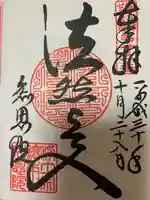 奉拝
平成三十年
十月二十八日
法然上人
知恩院